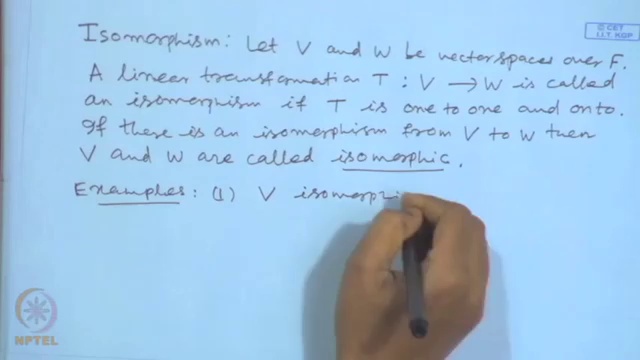 © CET
I.I.T. KGP
Isomorphism: Let V and W be vector spaces over F.
A linear transformation T : V → W is called
an isomorphism if T is one to one and onto.
If there is an isomorphism from V to W then
V and W are called isomorphic.
Examples: (1) V isomorphi
NPTEL